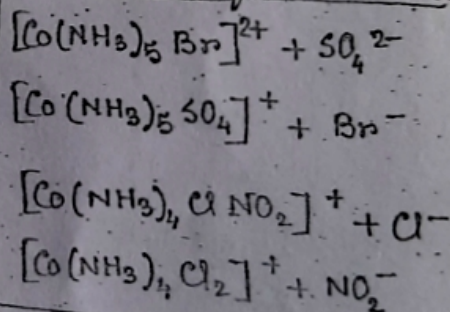 [Co(NH₃)₅ Br]²⁺ + SO₄²⁻
[Co(NH₃)₅ SO₄]⁺ + Br⁻
[Co(NH₃)₄ Cl NO₂]⁺ + Cl⁻
[Co(NH₃)₄ Cl₂]⁺ + NO₂⁻